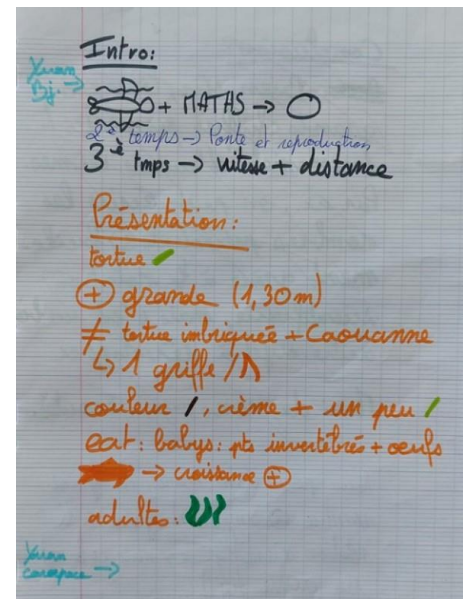 Intro:
Yuan
Bj. →
+ MATHS →
2è temps → Ponte et reproduction
3è tmps → vitesse + distance
Présentation:
tortue
+ grande (1,30m)
≠ tortue imbriquée + Caouanne
↳ 1 griffe /
couleur , crème + un peu
eat: babys: pts invertébrés + oeufs
→ croissance +
adultes:
carapace →